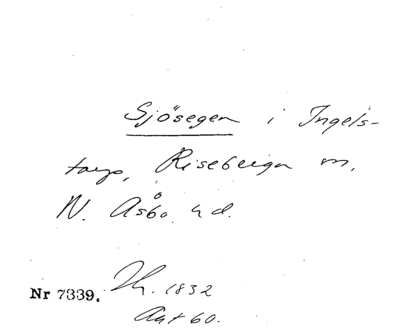 Sjösegen i Ingels-
torp, Riseberga sn,
N. Åsbo hd.
Nr 7339. Th. 1832
Aut 60.